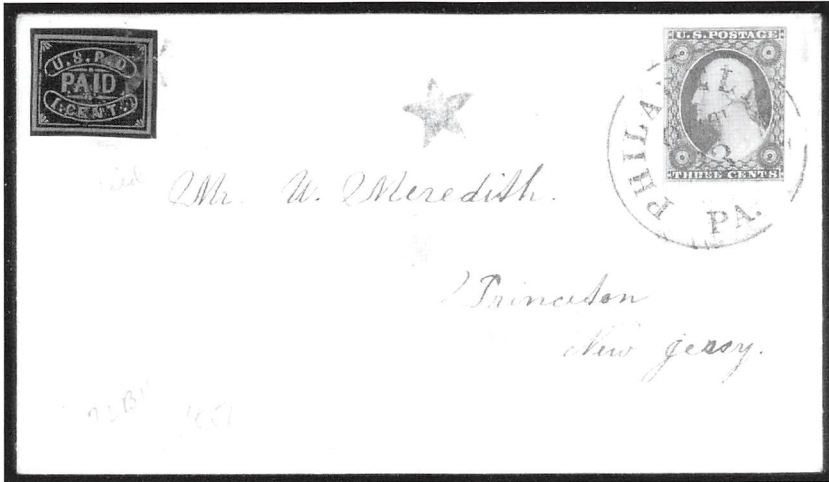 U.S.P.D
PAID
1 CENT.
U.S. POSTAGE
THREE CENTS
PA.
Mr. W. Meredith.
Princeton
New jersy.